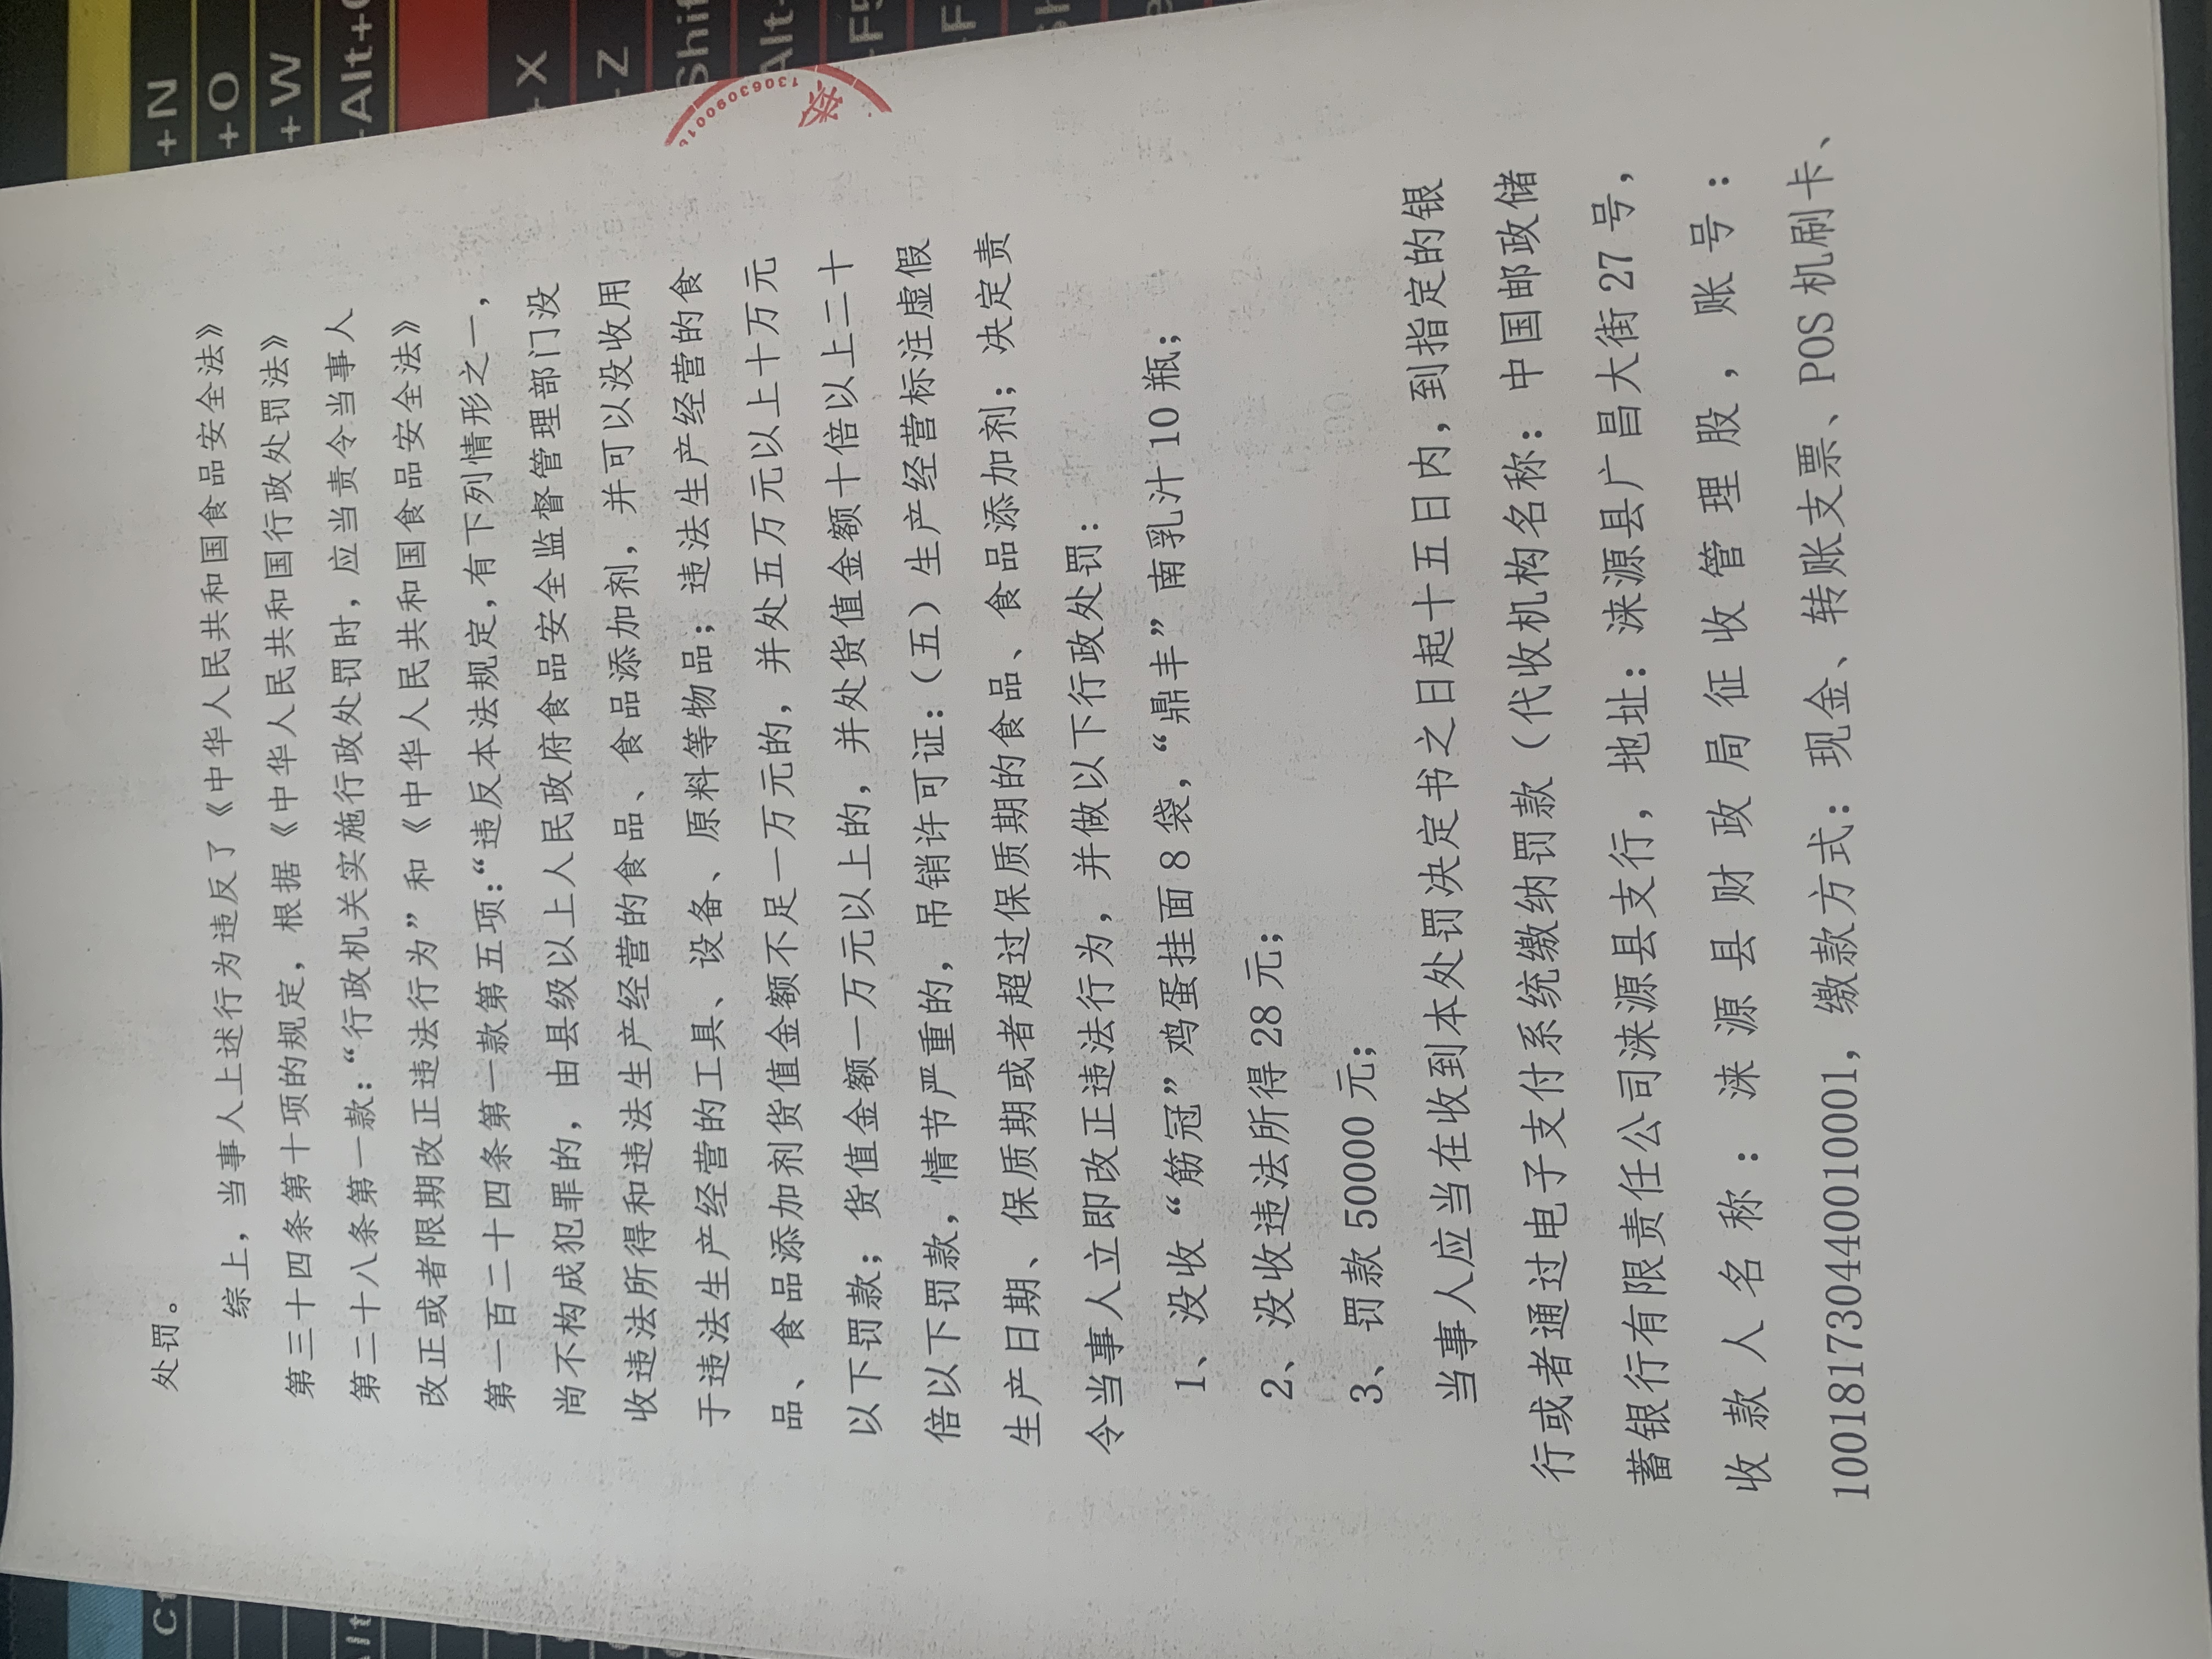 处罚。
综上，当事人上述行为违反了《中华人民共和国食品安全法》
第三十四条第十项的规定，根据《中华人民共和国行政处罚法》
第二十八条第一款：“行政机关实施行政处罚时，应当责令当事人
改正或者限期改正违法行为”和《中华人民共和国食品安全法》
第一百二十四条第一款第五项：“违反本法规定，有下列情形之一，
尚不构成犯罪的，由县级以上人民政府食品安全监督管理部门没
收违法所得和违法生产经营的食品、食品添加剂，并可以没收用
于违法生产经营的工具、设备、原料等物品；违法生产经营的食
品、食品添加剂货值金额不足一万元的，并处五万元以上十万元
以下罚款；货值金额一万元以上的，并处货值金额十倍以上二十
倍以下罚款，情节严重的，吊销许可证：（五）生产经营标注虚假
生产日期、保质期或者超过保质期的食品、食品添加剂；决定责
令当事人立即改正违法行为，并做以下行政处罚：
1、没收“筋冠”鸡蛋挂面8袋，“鼎丰”南乳汁10瓶；
2、没收违法所得28元；
3、罚款50000元；
当事人应当在收到本处罚决定书之日起十五日内，到指定的银
行或者通过电子支付系统缴纳罚款（代收机构名称：中国邮政储
蓄银行有限责任公司涞源县支行，地址：涞源县广昌大街27号，
收款人名称：涞源县财政局征收管理股，账号：
100181730440010001，缴款方式：现金、转账支票、POS机刷卡、
+N
+O
+W
+X